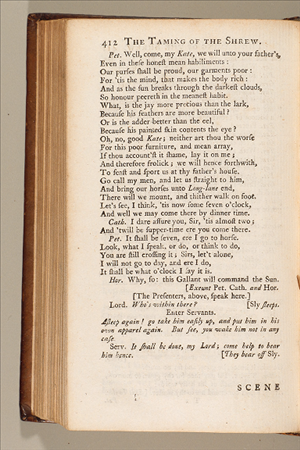 412 THE TAMING OF THE SHREW.
Pet. Well, come, my Kate, we will unto your father's,
Even in these honest mean habiliments:
Our purses shall be proud, our garments poor:
For 'tis the mind, that makes the body rich:
And as the sun breaks through the darkest clouds,
So honour peereth in the meanest habit.
What, is the jay more precious than the lark,
Because his feathers are more beautiful?
Or is the adder better than the eel,
Because his painted skin contents the eye?
Oh, no, good Kate; neither art thou the worse
For this poor furniture, and mean array,
If thou account'st it shame, lay it on me;
And therefore frolick; we will hence forthwith,
To feast and sport us at thy father's house.
Go call my men, and let us straight to him,
And bring our horses unto Long-lane end,
There will we mount, and thither walk on foot.
Let's see, I think, 'tis now some seven o'clock,
And well we may come there by dinner time.
Cath. I dare assure you, Sir, 'tis almost two;
And 'twill be supper-time ere you come there.
Pet. It shall be seven, ere I go to horse.
Look, what I speak, or do, or think to do,
You are still crossing it; Sirs, let't alone,
I will not go to day, and ere I do,
It shall be what o'clock I say it is.
Hor. Why, so: this Gallant will command the Sun.
[Exeunt Pet. Cath. and Hor.
[The Presenters, above, speak here.]
Lord. Who's within there? [Sly sleeps.
Enter Servants.
Asleep again! go take him easily up, and put him in his
own apparel again. But see, you wake him not in any
case.
Serv. It shall be done, my Lord; come help to bear
him hence. [They bear off Sly.
SCENE